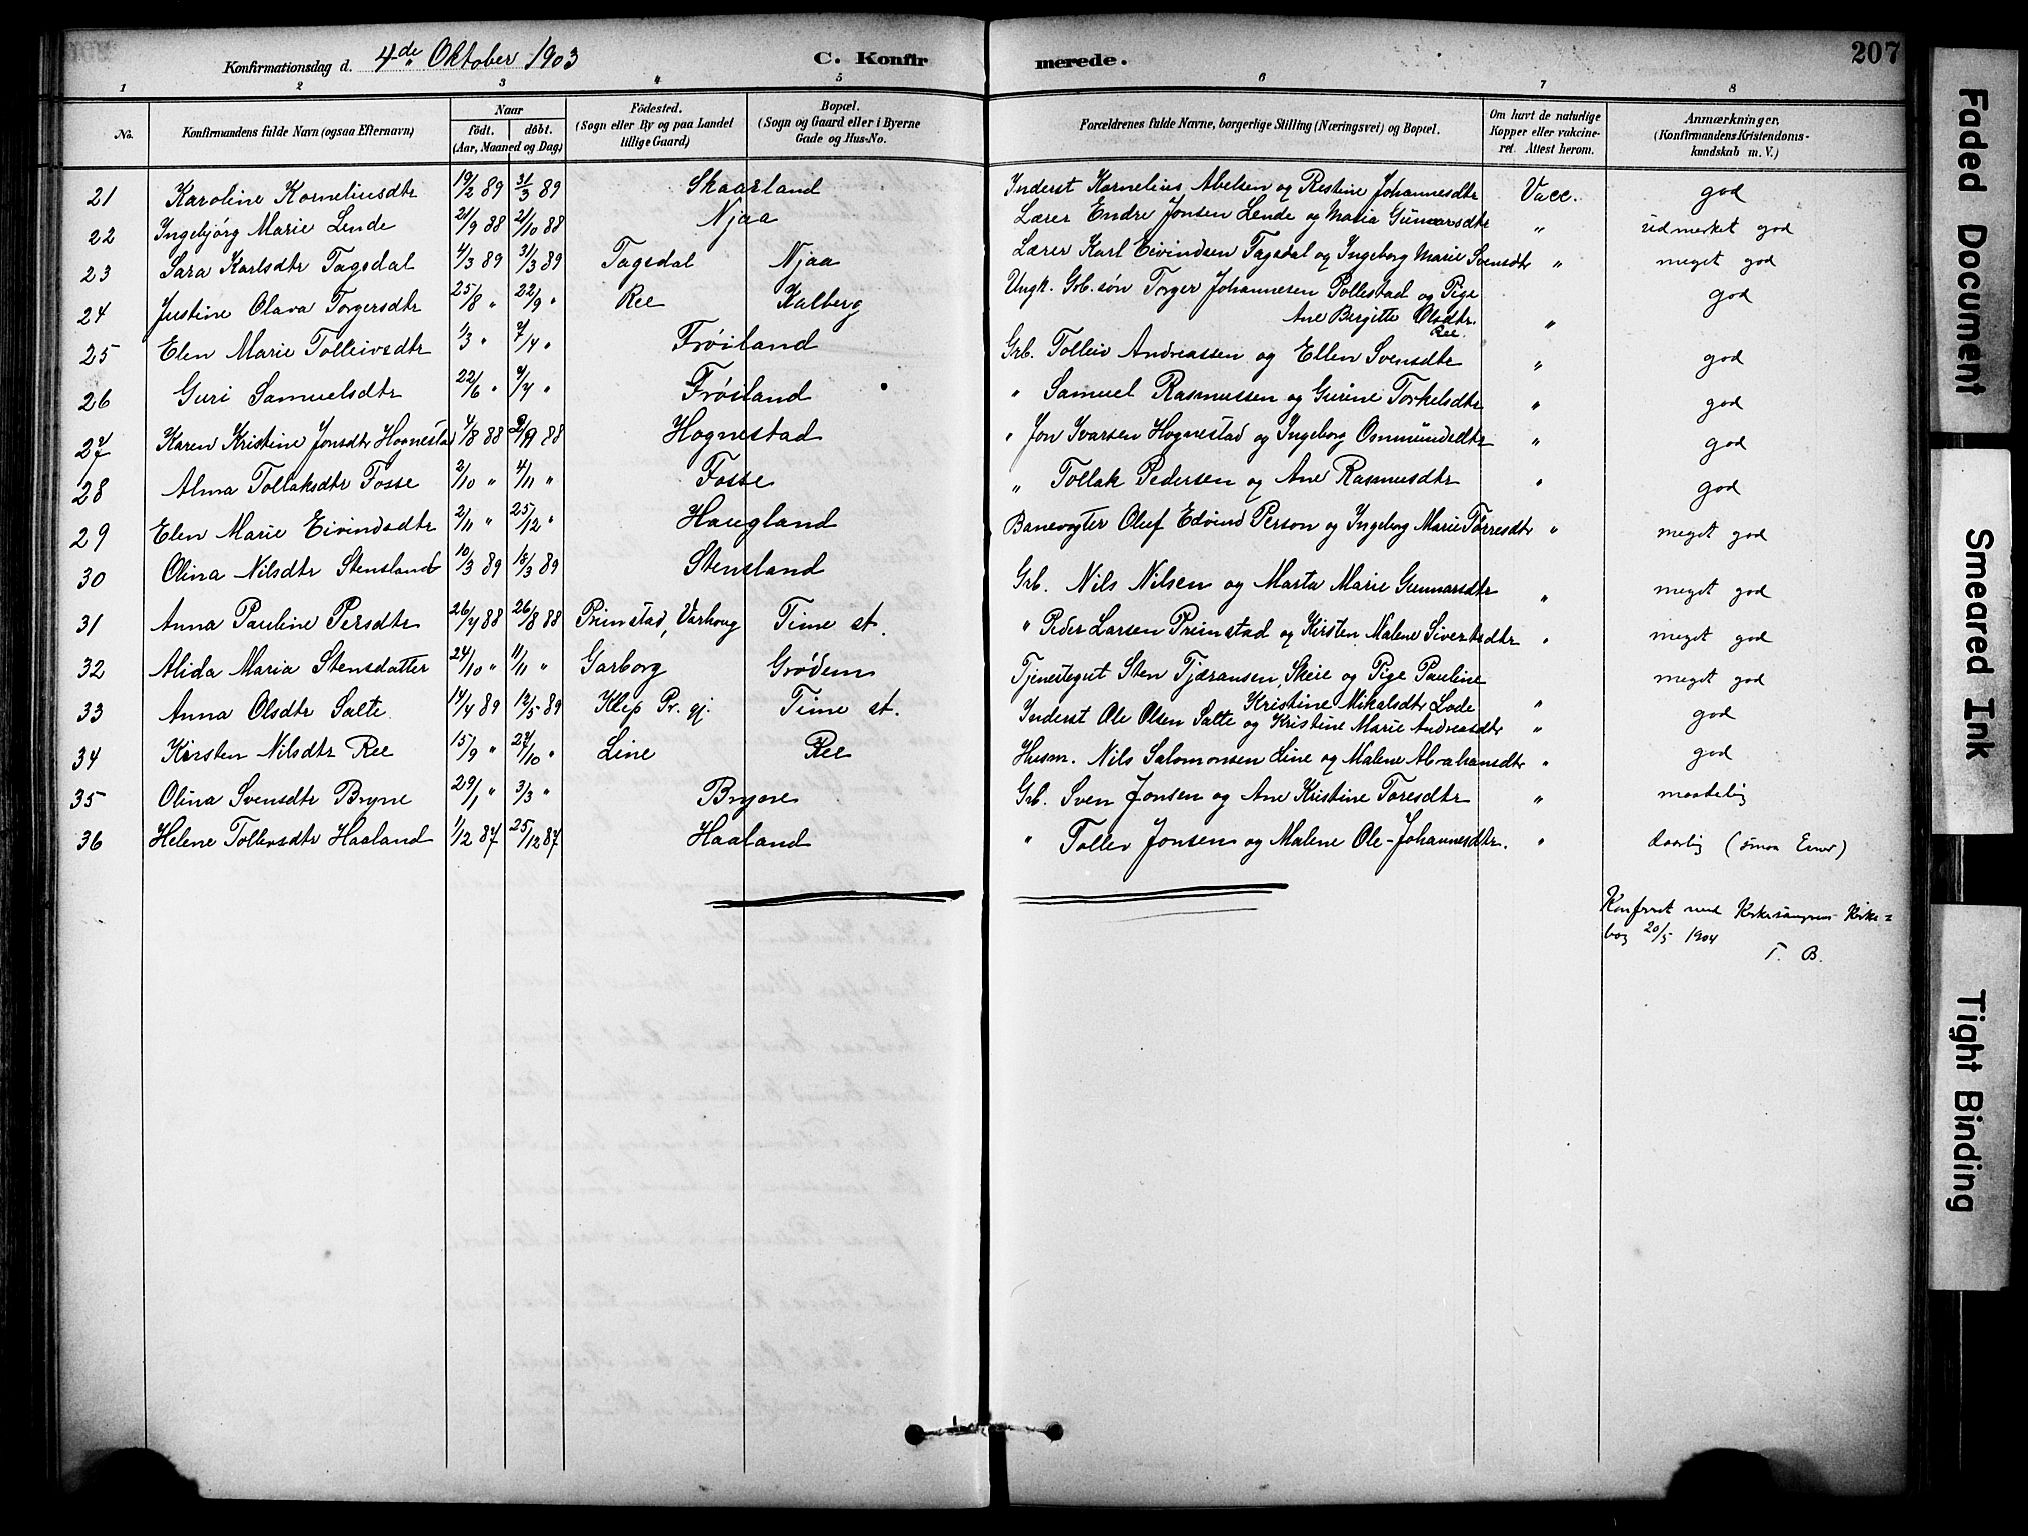 Konfirmationsdag d. 4de Oktober 1903 C. Konfirmerede. 207
1 2 3 4 5 6 7 8
No. Konfirmandens fulde Navn (ogsaa Efternavn) Naar födt. döbt. (Aar, Maaned og Dag) Födested. (Sogn eller By og paa Landet tillige Gaard) Bopæl. (Sogn og Gaard eller i Byerne Gade og Hus-No. Forældrenes fulde Navne, borgerlige Stilling (Næringsvei) og Bopæl. Om havt de naturlige Kopper eller vakcineret. Attest herom. Anmærkninger, (Konfirmandens Kristendomskundskab m. V.)
21 Karoline Korneliusdtr 19/2 89 31/3 89 Skaarland Inderst Kornelius Abelsen og Restine Johannesdtr Vacc. god
22 Ingebjørg Marie Lende 21/9 88 21/10 88 Njaa Lærer Endre Jonsen Lende og Maria Gunnarsdtr " udmerket god
23 Sara Karlsdtr Tagsdal 4/3 89 31/3 89 Tagsdal Njaa Lærer Karl Eivindsen Tagsdal og Ingeborg Marie Svensdtr " meget god
24 Justine Olava Torgersdtr 25/8 " 22/9 " Ree Kalberg Ungk. Grb. søn Torger Johannesen Pollestad og Pige Ane Bergitte Olsdtr. Ree. " god
25 Elen Marie Tolleivsdtr 1/3 " 7/4 " Frøiland Grb. Tolleiv Andreassen og Ellen Svensdtr " god
26 Guri Samuelsdtr 22/6 " " Frøiland " Samuel Rasmussen og Gurine Torkelsdtr " god
27 Karen Kristine Jonsdtr Hognestad 4/8 88 2/9 88 Hognestad " Jon Ivarsen Hognestad og Ingeborg Osmundsdtr " god
28 Alma Tollaksdtr Fosse 2/10 " 4/11 " Fosse " Tollak Pedersen og Ane Rasmusdtr " god
29 Elen Marie Eivindsdtr 2/11 " 25/12 " Haugland Banevogter Oluf Edvind Person og Ingeborg Marie Torresdtr " meget god
30 Olina Nilsdtr Stensland 10/3 89 15/3 89 Stensland Grb. Nils Nilsen og Marta Marie Gunnarsdtr " meget god
31 Anna Pauline Persdtr 26/7 88 26/8 88 Primstad, Varhoug Time st. " Peder Larsen Primstad og Kirsten Malene Sivertsdtr " meget god
32 Alida Maria Stensdatter 24/10 " 11/11 " Garborg Grødem Tjenestegut Sten Tjæransen, Skeie og Pige Pauline Kristine Mikalsdtr Lode " meget god
33 Anna Olsdtr Salte 14/4 89 12/5 89 Klep Pr. gj. Time st. Inderst Ole Olsen Salte og Kristine Marie Andreasdtr " god
34 Kirsten Nilsdtr Ree 15/9 " 27/10 " Line Ree Husm. Nils Salomonsen Line og Malene Abrahamsdtr " god
35 Olina Svensdtr Bryne 29/1 " 3/3 " Bryne Grb. Sven Jonsen og Ane Kristine Toresdtr " maadelig
36 Helene Tollevsdtr Haaland 1/12 87 25/12 87 Haaland " Tollev Jonsen og Malene Ole-Johannesdtr. " daarlig (smaa Evner)
Konferert med Kirkesangerens Kirke=
bog 20/5 1904
T. B.
Faded Document
Smeared Ink
Tight Binding